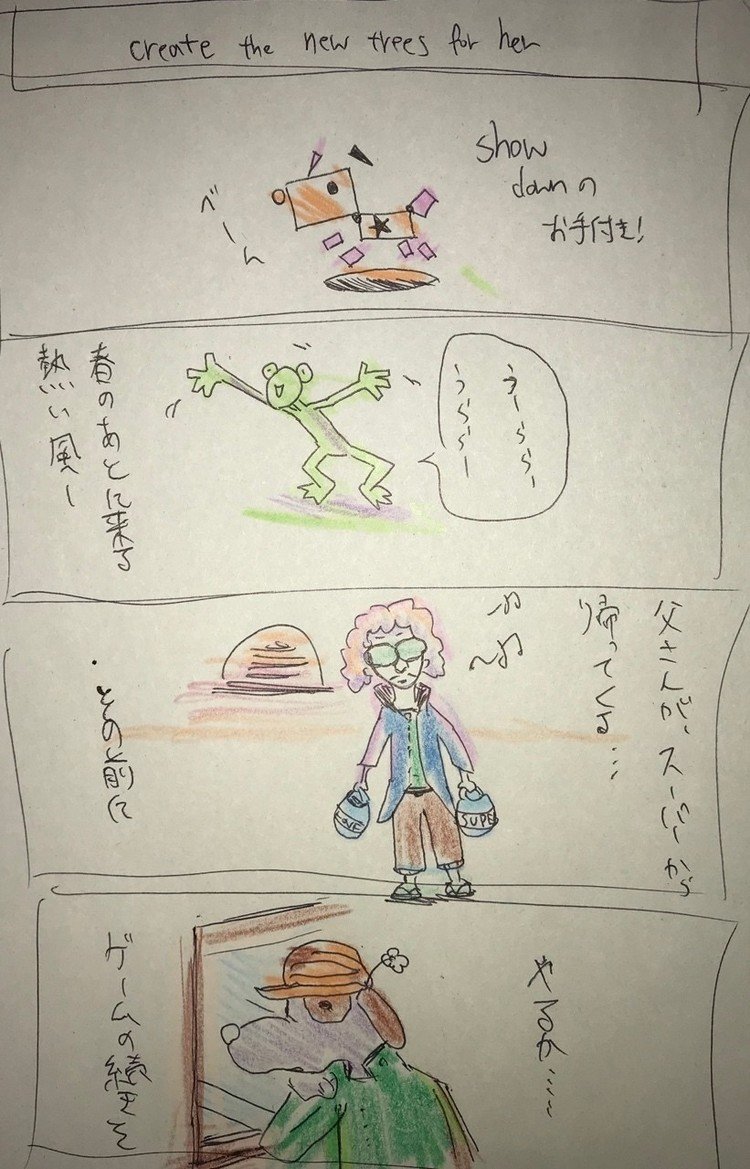 create the new trees for her
show
downの
お手付き!
べーん
うーららー
うららー
春のあとに来る
熱い風ー
父さんが、スーパーから
帰ってくる…
その前に
SUPE
やるか……
ゲームの続きを